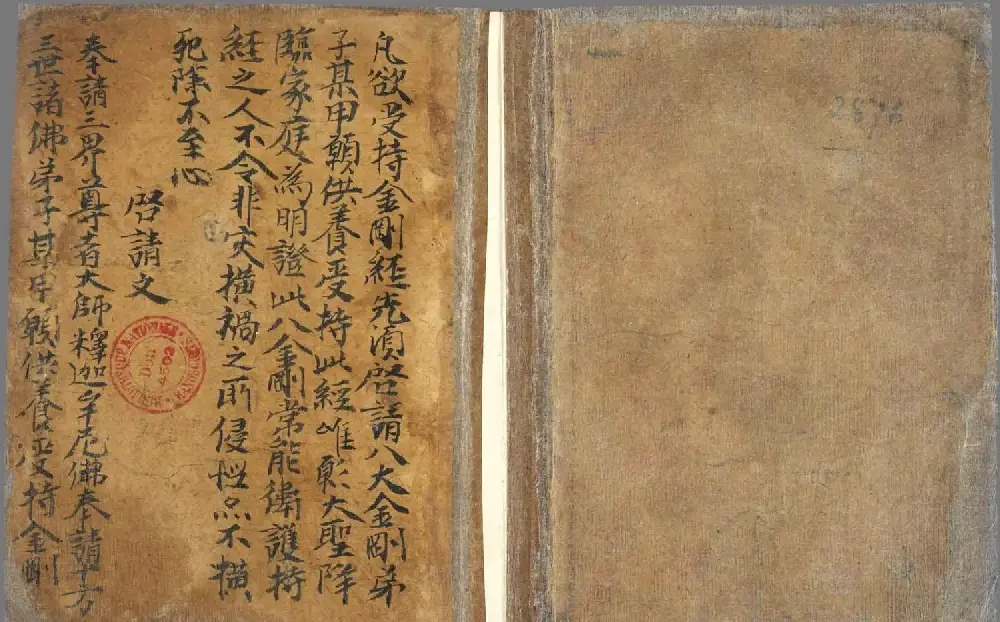 凡欲受持金剛經先須啓請八大金剛弟
子某甲願供養受持此經唯願大聖降
臨家庭為明證此八金剛常能衛護持
經之人不令非灾橫禍之所侵惱不橫
死除不至心
啓請文
奉請三界尊者大師釋迦牟尼佛奉請十方
三世諸佛弟子某甲願供養受持金剛